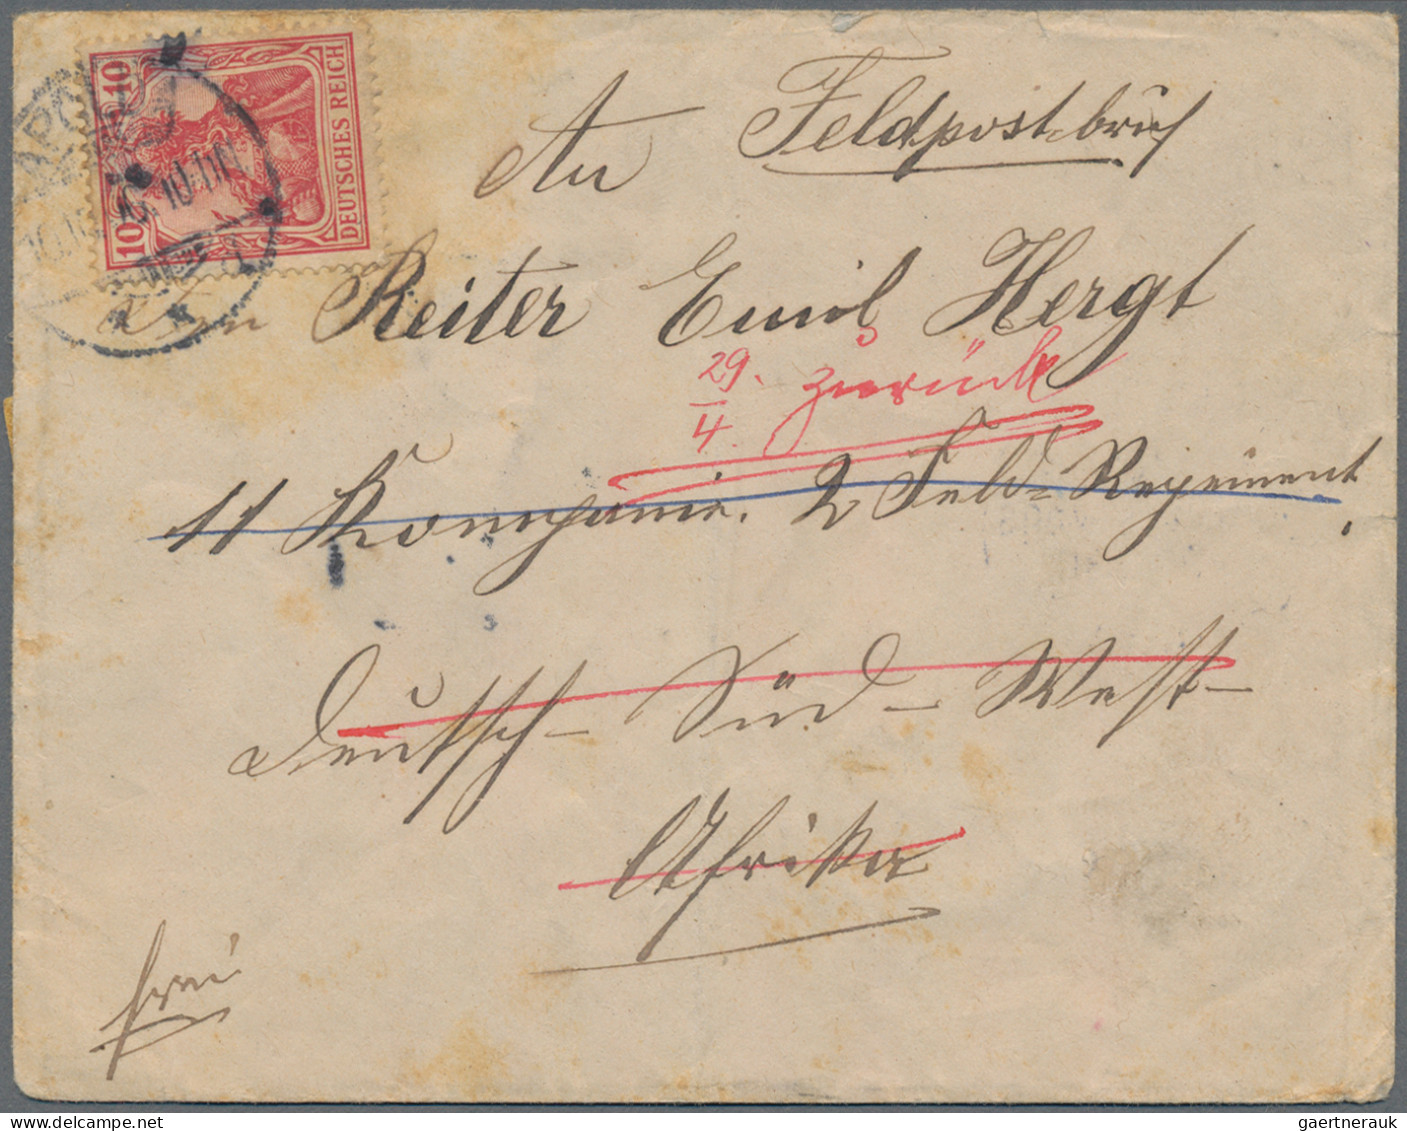 An Feldpostbrief
10
10
DEUTSCHES REICH
Reiter Emil Hergt
29.
4.
zurück
11 Kompanie. 2 Feld=Regiment.
Deutsch-Süd-West-
Afrika
frei
gaertnerauk